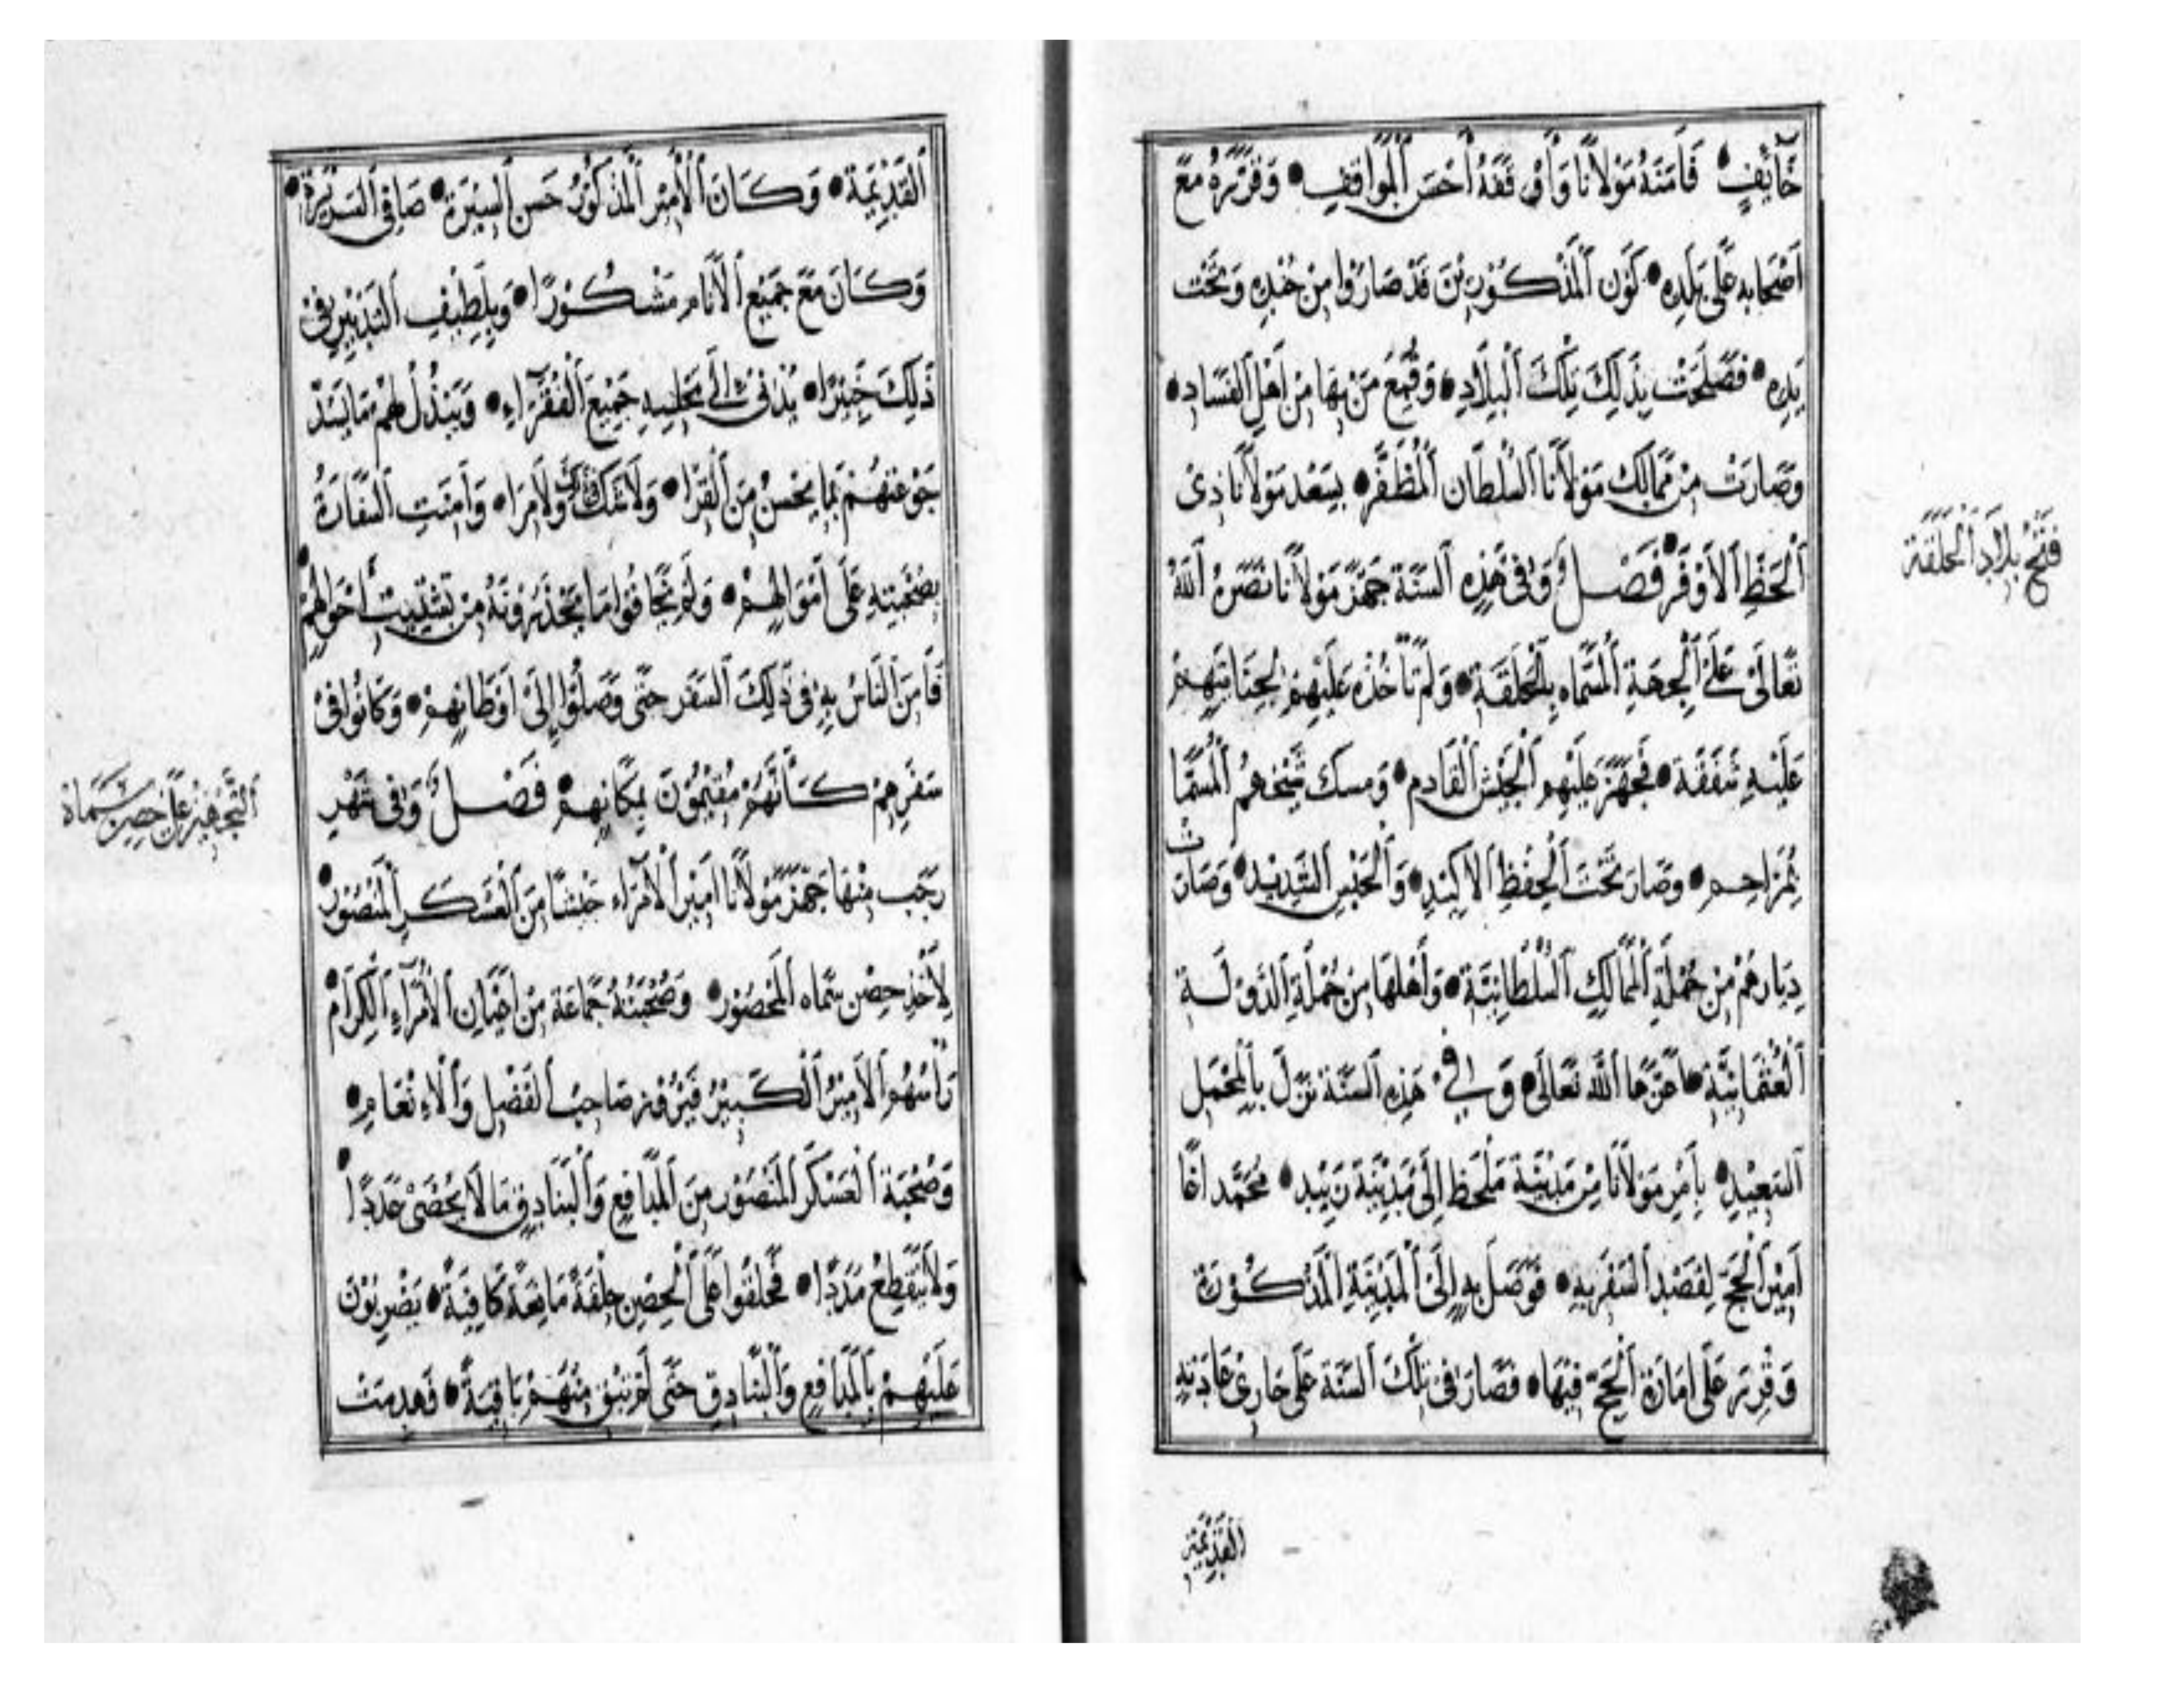 خَائِفٍ فَأَمَنَهُ مَوْلَانَا وَأَوْقَفَهُ أَحْسَنَ الْمَوَاقِفِ • وَقَرَّرَهُ مَعَ
أَصْحَابِهِ عَلَى بَلَدِهِ • كَوْنَ الْمَذْكُوْرِيْنَ قَدْ صَارَوْا مِنْ جُنْدِهِ وَتَحْتَ
يَدِهِ • فَصَلَحَتْ بِذَلِكَ تِلْكَ الْبِلَادِ • وَقُمِعَ مَنْ بِهَا مِنْ أَهْلِ الْفَسَادِ •
وَصَارَتْ مِنْ مَمَالِكِ مَوْلَانَا السُّلْطَانِ الْمُظَفَّرِ • بِسَعْدِ مَوْلَانَا ذِى
الْحَظِّ الْأَوْفَرِ • فَصْلٌ وَفِى هَذِهِ السَّنَةِ جَهَّزَ مَوْلَانَا نَصَرَهُ اللّٰهُ
تَعَالَى عَلَى الْجِهَةِ الْمُسَمَّاه بِالْحَلَقَةِ • وَلَمْ تَأْخُذْهُ عَلَيْهِمْ لِجِنَايَتِهِمْ
عَلَيْهِ شَفَقَة • فَجَهَّزَ عَلَيْهِم الْجَيْشَ الْقَادِم • وَمسكَ شَيْخَهُمُ الْمُسَمَّا
بْمُزَاحِم • وَصَارَ تَحْتَ الْحِفْظِ الْأَكِيْدِ • وَالْحَبْسِ الشَّدِيْدِ • وَصَارَت
دِيَارهُمْ مِنْ جُمْلَةِ الْمَمَالِكِ السُّلْطَانِيَّةِ • وَأَهْلهَا مِنْ جُمْلَةِ الدَّوْلَةِ
الْعُثْمَانِيَّةِ • أَعَزَّهَا اللّٰه تَعَالَى • وَفِي هَذِهِ السَّنَةِ نَزَلَ بِالْمَحْمَلِ
السَّعِيْدِ • بِأَمْرِ مَوْلَانَا مِنْ مَدِيْنَةِ مَلْحَظ إِلَى مَدِيْنَةِ زَبِيْد • مُحَمَّد أَغَا
أَمِيْن الْحَجّ لِقَصْدِ السَّفَرِ بِهِ • فَوَصَلَ بِهِ إِلَى الْمَدِيْنَةِ الْمَذْكُوْرَةِ
وَقُرِّرَ عَلَى أَمَارَةِ الْحَجِّ فِيْهَا • فَصَارَ فِى تِلْكَ السَّنَة عَلَى جَارِى عَادَتِهِ
فَتْحُ بِلَادِ الْحَلَقَة
الْقَدِيْمَة
الْقَدِيْمَةِ • وَكَانَ الْأَمِيْر الْمَذْكُوْرُ حَسَن السِّيْرَةِ • صَافِى السَّرِيْرَةِ •
وَكَانَ مَعَ جَمِيْعِ الْأَنَامِ مَشْكُوْرًا • وَبِلَطِيْفِ التَّدْبِيْرِ فِىْ
ذَلِكَ خَبِيْرًا • يُدْنِى إِلَى مَجْلِسِهِ جَمِيْعَ الْفُقَرَآءِ • وَيَبْذُلُ لَهُمْ مَا يَسُدّ
جَوْعَتَهُمْ بِمَا يَحْسُنُ مِنَ الْقِرَا • وَلَا شَكَّ وَلَا مِرَا • وَأَمِنَتِ السَّفَارَةُ
بِصُحْبَتِهِ عَلَى أَمْوَالِهِمْ • وَلَمْ يَخَافُوْا مَا يَحْذَرُوْنَهُ مِنْ تَشْتِيْتِ أَحْوَالِهِمْ •
فَأَمِنَ النَّاسُ بِهِ فِى ذَلِكَ السَّفَرِ حَتَّى وَصَلُوْا إِلَى أَوْطَانِهِمْ • وَكَانُوْا فِىْ
سَفَرِهِمْ كَأَنَّهُمْ مُقِيْمُوْنَ بِمَكَانِهِمْ • فَصْلٌ وَفِى شَهْرِ
رَجَب مِنْهَا جَهَّزَ مَوْلَانَا أَمِيْرُ الْأُمَرَآء جَيْشًا مِنَ الْعَسْكَرِ الْمَنْصُوْرِ •
لِأَخْذِ حِصْنِ سَمَاه الْمَحْصُوْرِ • وَصُحْبَتهُ جَمَاعَة مِنْ أَعْيَانِ الْأُمَرَآءِ الْكِرَامِ •
الْأَمِيْرُ الْكَبِيْرُ صَاحِبُ الْفَضْلِ وَالْاِنْعَامِ •
وَصُحْبَة الْعَسْكَرِ الْمَنْصُوْرِ مِنَ الْمَدَافِعِ وَالْبَنَادِقِ مَا لَا يُحْصَى عَدَدًا •
وَلَا يَنْقَطِعُ مَدَدًا • فَحَلَّقُوْا عَلَى الْحِصْنِ حِلْقَةً مَانِعَةً كَافِيَةً • يَضْرِبُوْنَ
عَلَيْهِمْ بِالْمَدَافِعِ وَالْبَنَادِقِ حَتَّى لَمْ تَبْقَ مِنْهُمْ بَاقِيَةً • فَهدِمَتْ
التَّجْهِيْز عَلَى حِصْنِ سَمَاة